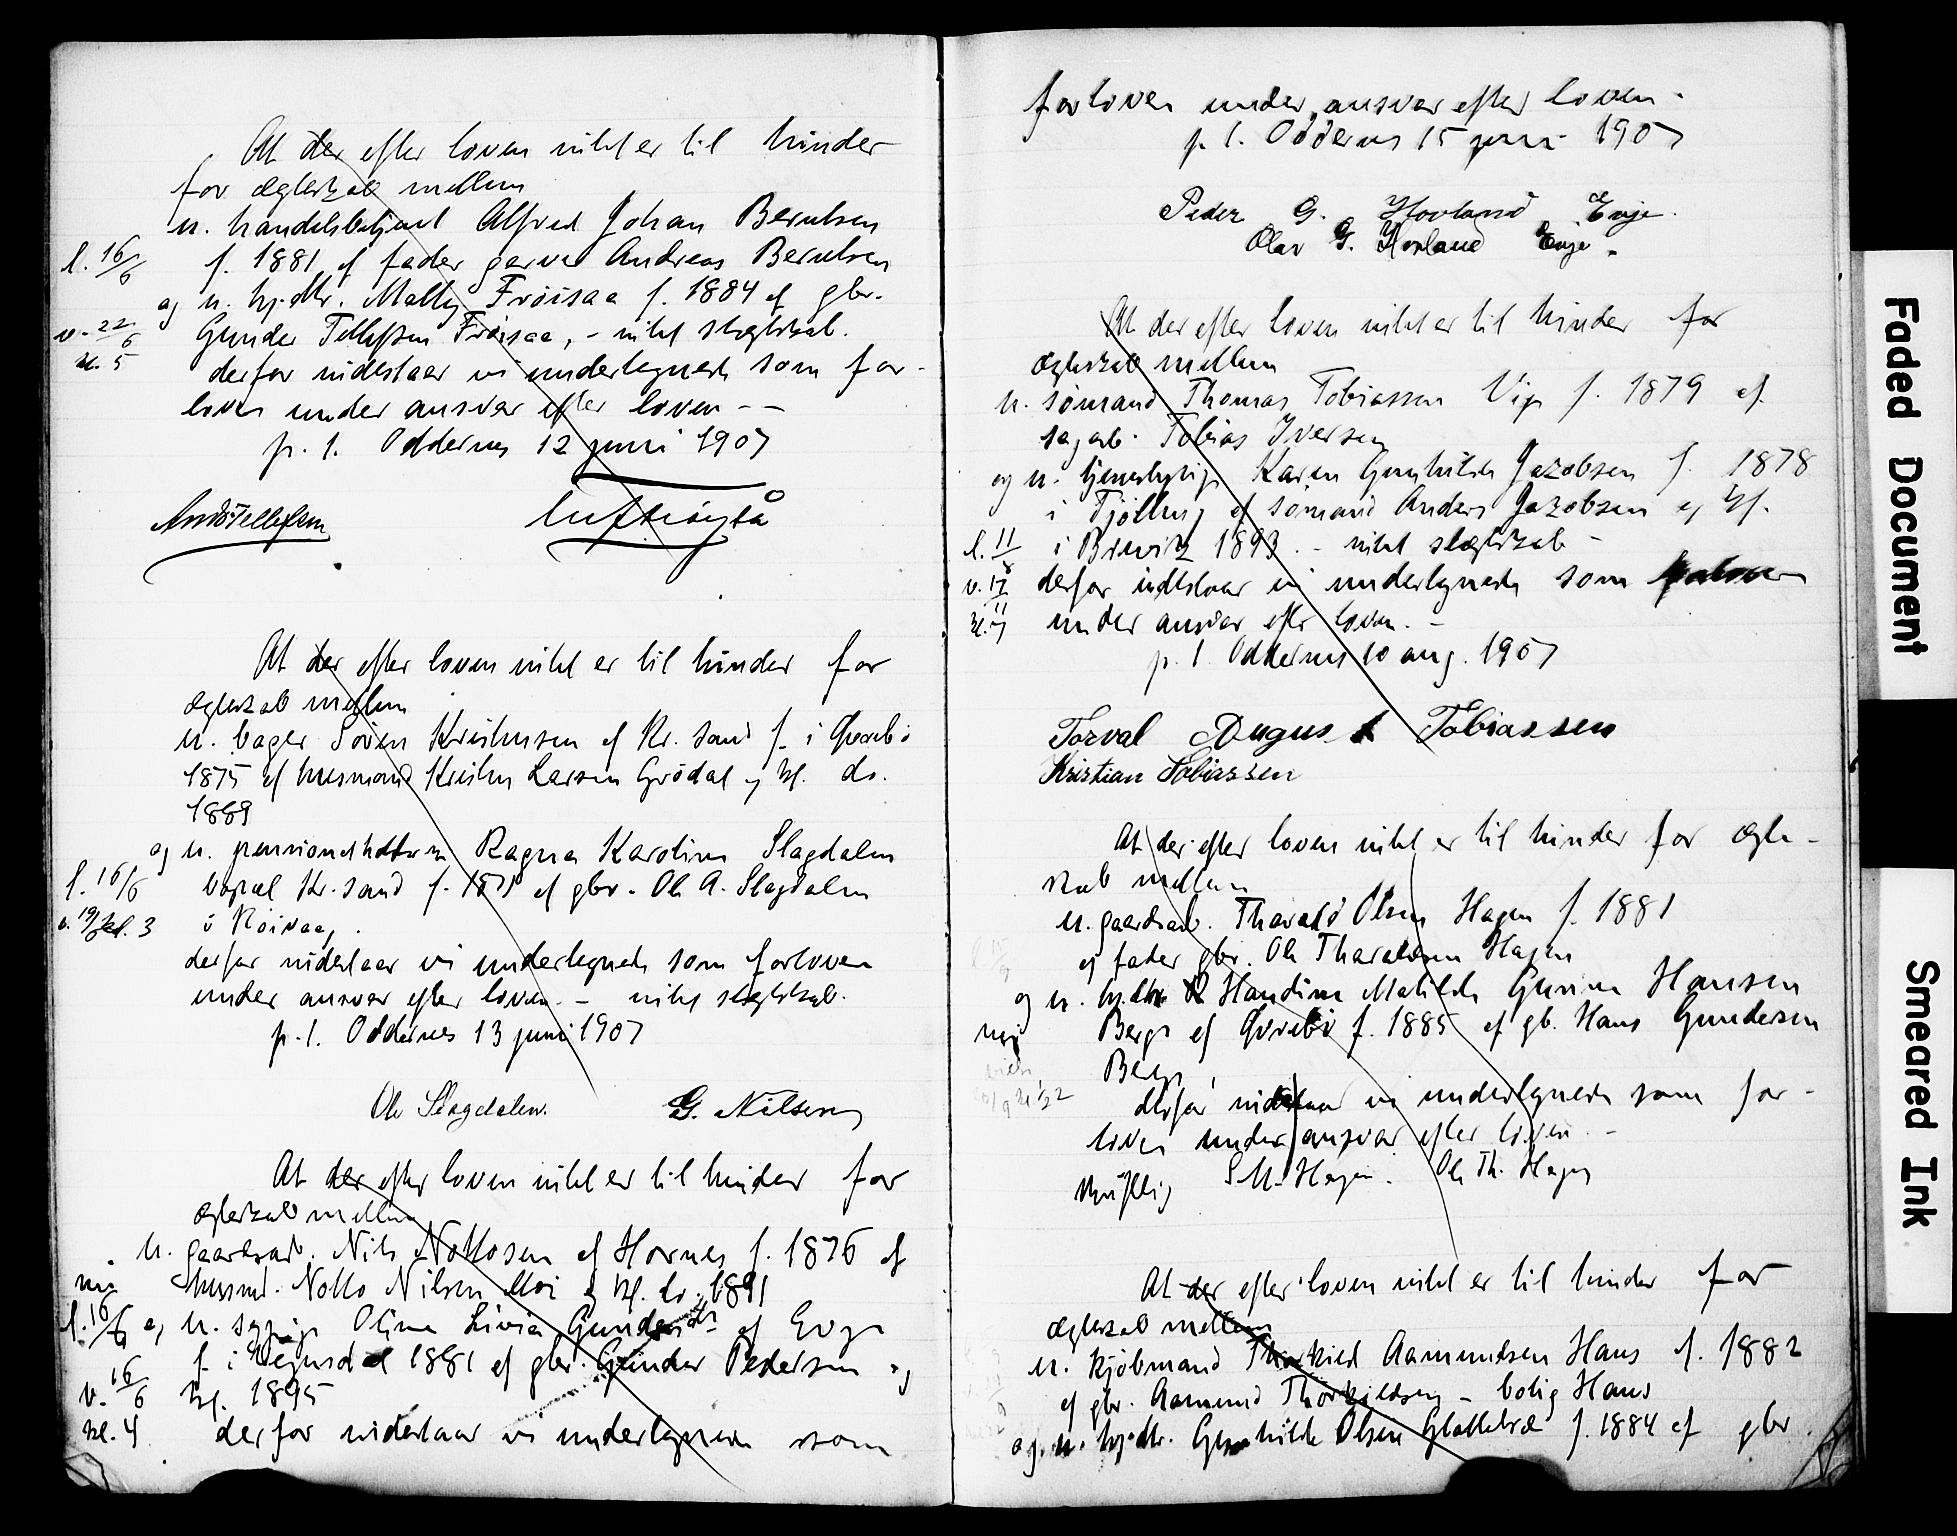 At der efter loven intet er til hinder
for ægteskab mellem
u. handelsbetjent Alfred Johan Berntsen
l. 16/6 f. 1881 af fader garver Andreas Berntsen
og u. hj.dtr. Mally Frøisaa f. 1884 af gbr.
v. 22/6 Gunder Tellefsen Frøisaa, - intet slægtskab.
kl. 5
derfor indestaar vi undertegnede som for-
lover under ansvar efter loven --
p. t. Oddernes 12 juni 1907
Ands Tellefsen
At der efter loven intet er til hinder for
ægteskab mellem
u. bager Søren Kristensen af Kr. sand f. i Øvrebø
1875 af husmand Kristen Larsen Grødal og kf. do.
1889
og u. pensionatholderske Ragna Karoline Slagdalen
l. 16/6 bopæl Kr. sand f. 1875 af gbr. Ole A. Slagdalen
v. 19/6 kl. 3 i Høivaag.
derfor indestaar vi undertegnede som forlover
under ansvar efter loven. - intet slægtskab.
p. t. Oddernes 13 juni 1907
Ole Slagdalen. G. Nilsen
At der efter loven intet er til hinder for
ægteskab mellem
u. gaardsarb. Nils Nottosen af Hornes f. 1876 af
husmd. Notto Nilsen Moi og kf. do. 1891
l. 16/6 og u. sypige Oline Livia Gundersdtr af Evje
f. i Vegusdal 1881 af gbr. Gunder Pedersen og
v. 16/6 kf. 1895
kl. 4 derfor indestaar vi undertegnede som
forlover under ansvar efter loven -
p. t. Oddernes 15 juni 1907
Peder G. Hovland Evje.
Olav G. Hovland Evje.
At der efter loven intet er til hinder for
ægteskab mellem
u. sømand Thomas Tobiassen Vip f. 1879 af
sagarb. Tobias Iversen
og u. tjenestepige Karen Gunhilde Jakobsen f. 1878
i Tjølling af sømand Anders Jakobsen og kf.
l. 11/8 i Brevik 1893. - intet slægtskab -
v. 17/8 derfor indestaar vi undertegnede som forlover
kl. 7 under ansvar efter loven. -
p. t. Oddernes 10 aug. 1907
Torval August Tobiassen
Kristian Tobiassen
At der efter loven intet er til hinder for ægte-
skab mellem
u. gaardsarb. Tharald Olsen Hagen f. 1881
af fader gbr. Ole Tharaldsen Hagen
og u. hj.dtr Handine Matilde Gurine Hansen
Berge af Øvrebø f. 1885 af gb. Hans Gundersen
Berge
derfor indestaar vi undertegnede som for-
lover under ansvar efter loven. -
S M. Hagen. Ole Th. Hagen
At der efter loven intet er til hinder for
ægteskab mellem
u. kjøbmand Thorkild Aamundsen Haus f. 1882
af gbr. Aamund Thorkildsen - bolig Haus
og u. hj.dtr. Gunhilde Olsen Glattetræ f. 1884 af gbr.
Faded Document
Smeared Ink